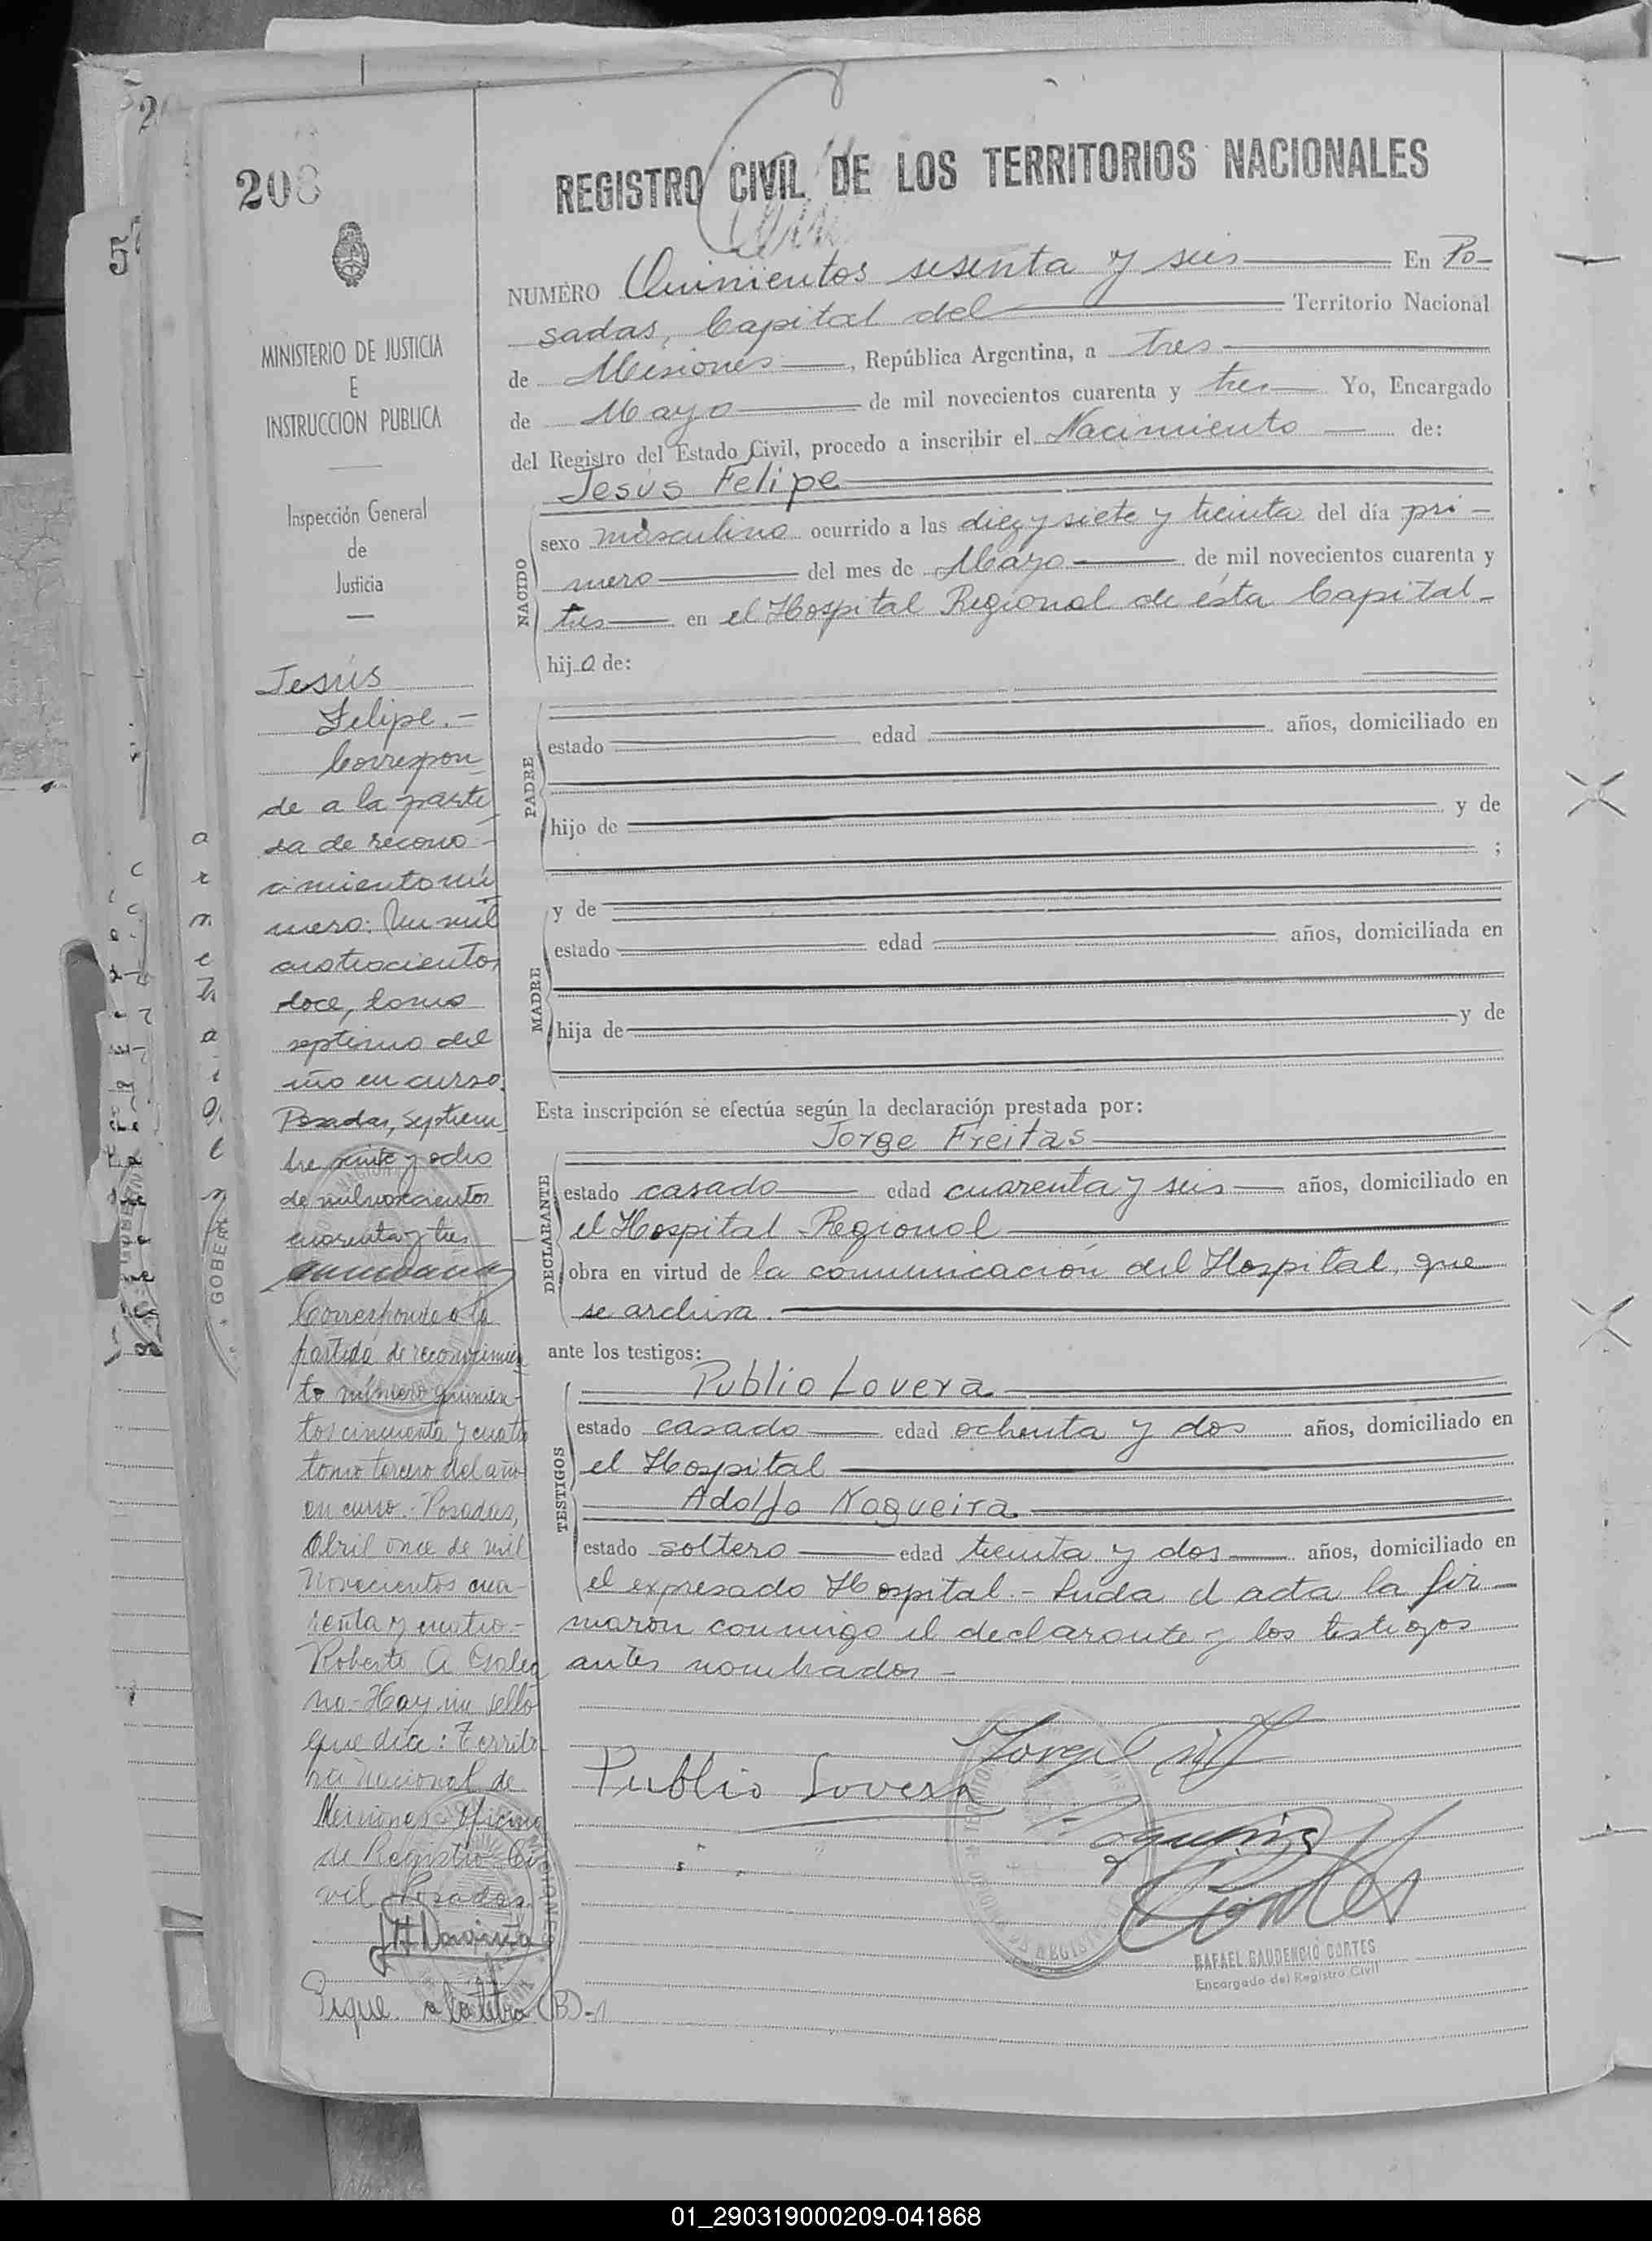 208
MINISTERIO DE JUSTICIA
E
INSTRUCCION PUBLICA
Inspección General
de
Justicia
Jesús
Felipe.-
Correspon
de a la parti
da de recono-
cimiento nú
mero: Un mil
cuatrocientos
doce, tomo
septimo del
año en curso.
Posadas, Septiem
bre veinte y ocho
de mil novecientos
cuarenta y tres
Corresponde a la
partida de reconocimien
to número quinien-
tos cincuenta y cuatro
tomo tercero del año
en curso.- Posadas,
Abril once de mil
novecientos cua-
renta y cuatro.-
Roberto A. Galea
no- Hay un sello
que dia: Territo
rio Nacional de
Misiones- Oficina
de Registro Ci
vil Posadas.
Sigue a la letra (B)-
REGISTRO CIVIL DE LOS TERRITORIOS NACIONALES
NUMERO Quinientos sesenta y seis En Po-
sadas, Capital del Territorio Nacional
de Misiones, República Argentina, a tres
de Mayo de mil novecientos cuarenta y tres Yo, Encargado
del Registro del Estado Civil, procedo a inscribir el Nacimiento de:
Jesús Felipe
NACIDO
sexo masculino ocurrido a las diez y siete y treinta del día pri-
mero del mes de Mayo de mil novecientos cuarenta y
tres en el Hospital Regional de ésta Capital-
hijo de:
PADRE
estado edad años, domiciliado en
hijo de y de
;
MADRE
y de
estado edad años, domiciliada en
hija de y de
Esta inscripción se efectúa según la declaración prestada por:
Jorge Freitas
DECLARANTE
estado casado edad cuarenta y seis años, domiciliado en
el Hospital Regional
obra en virtud de la comunicación del Hospital, que
se archiva.
ante los testigos:
Publio Lovera
TESTIGOS
estado casado edad ochenta y dos años, domiciliado en
el Hospital
Adolfo Nogueira
estado soltero edad treinta y dos años, domiciliado en
el expresado Hospital.- Leida el acta la fir-
maron conmigo el declarante y los testigos
antes nombrados-
Publio Lovera
RAFAEL GAUDENCIO CORTES
Encargado del Registro Civil
01_290319000209-041868